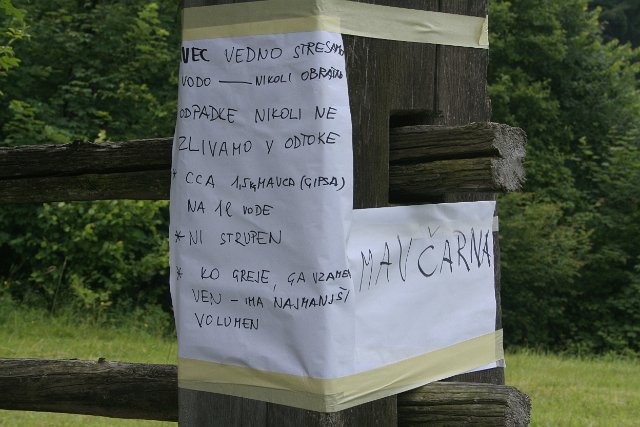 VEC VEDNO STRESAMO
VODO — NIKOLI
ODPADKE NIKOLI NE
ZLIVAMO V ODTOKE
* CCA 1,5kg MAVCA (GIPSA)
NA 1l VODE
* NI STRUPEN
* KO GREJE, GA VZAMEM
VEN - IMA NAJMANJŠI
VOLUMEN
MAVČARNA